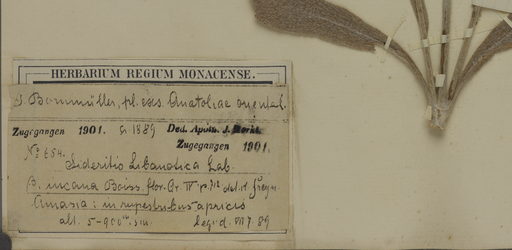 HERBARIUM REGIUM MONACENSE.
J. Bornmüller, pl. exs. Anatoliae orient.
Zugegangen 1901. 1889 Ded. Apoth. J.
Zugegangen 1901.
No 654.
Sideritis Libanotica Lab.
β. incana Boiss. flor. Or. IV p. 712 det. it
Amasia: in rupestribus apricis
alt. 5-900 m. s.m. legi d. 7. 89